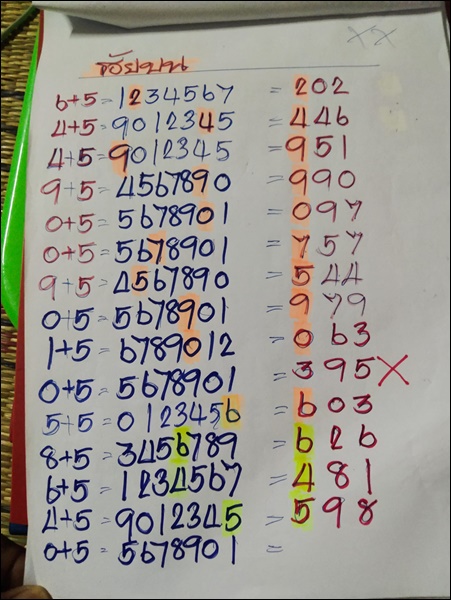 XX
ร้อยบน
6+5=1234567 = 202
4+5=9012345 = 446
4+5=9012345 = 951
9+5=4567890 = 990
0+5=5678901 = 097
0+5=5678901 = 757
9+5=4567890 = 544
0+5=5678901 = 979
1+5=6789012 = 063
0+5=5678901 = 395X
5+5=0123456 = 603
8+5=3456789 = 626
6+5=1234567 = 481
4+5=9012345 = 598
0+5=5678901 =